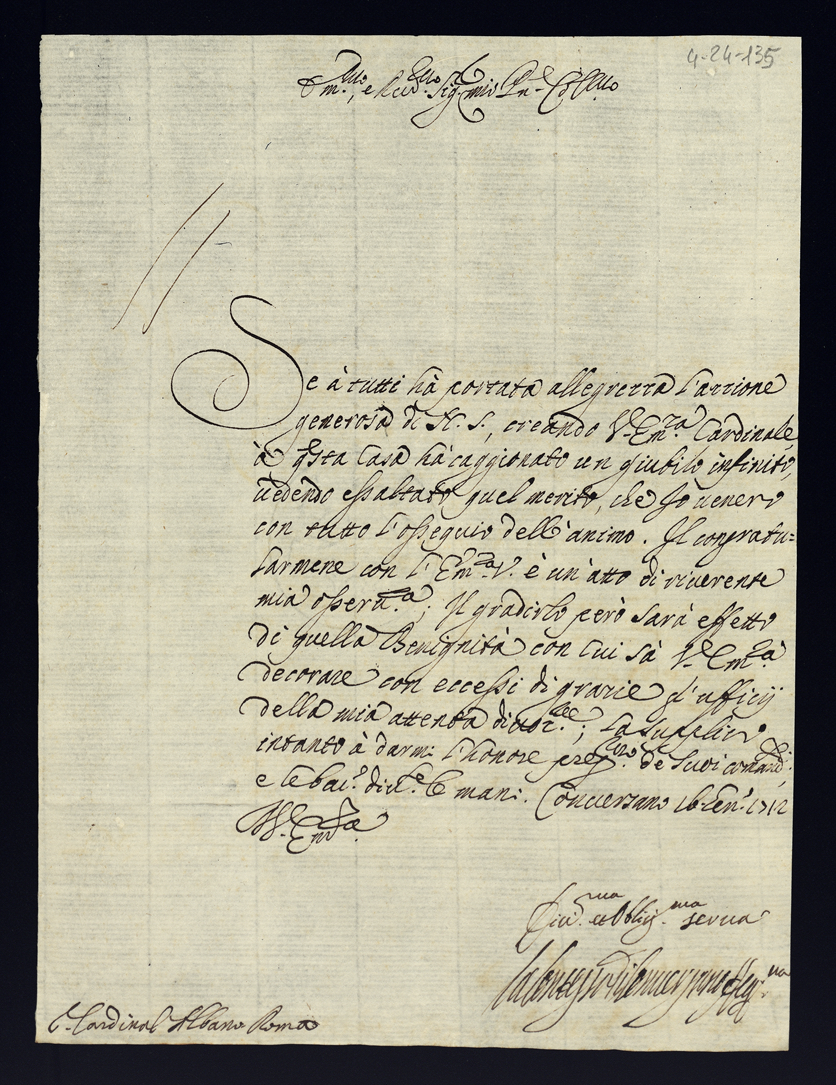 4-24-135
Em.mo, e Rev.mo Sig. mio P.ne Col.mo
Se à tutti hà portata allegrezza l'azzione
generosa di N. S., creando V. Em.za Cardinale,
à q̃sta Casa hà caggionato un giubilo infinito,
vedendo essaltato quel merito, che Io venero
con tutto l'ossequio dell'animo. Il congratu=
larmene con l'Em.za V. è un'atto di riverente
mia osserv.a; Il gradirlo però sarà effetto
di quella Benignità con cui sà V. Em.za
decorare con eccessi di grazie gl'ufficij
della mia attenta divoz.ne; la supplico
intanto à darmi l'honore de suoi comandi,
e le bacio le mani. Conversano 16 Gen.o 1712
V. Em.za
Div.ma et Oblig.ma serva
La Contessa di Conversano
C. Cardinal Albano Roma